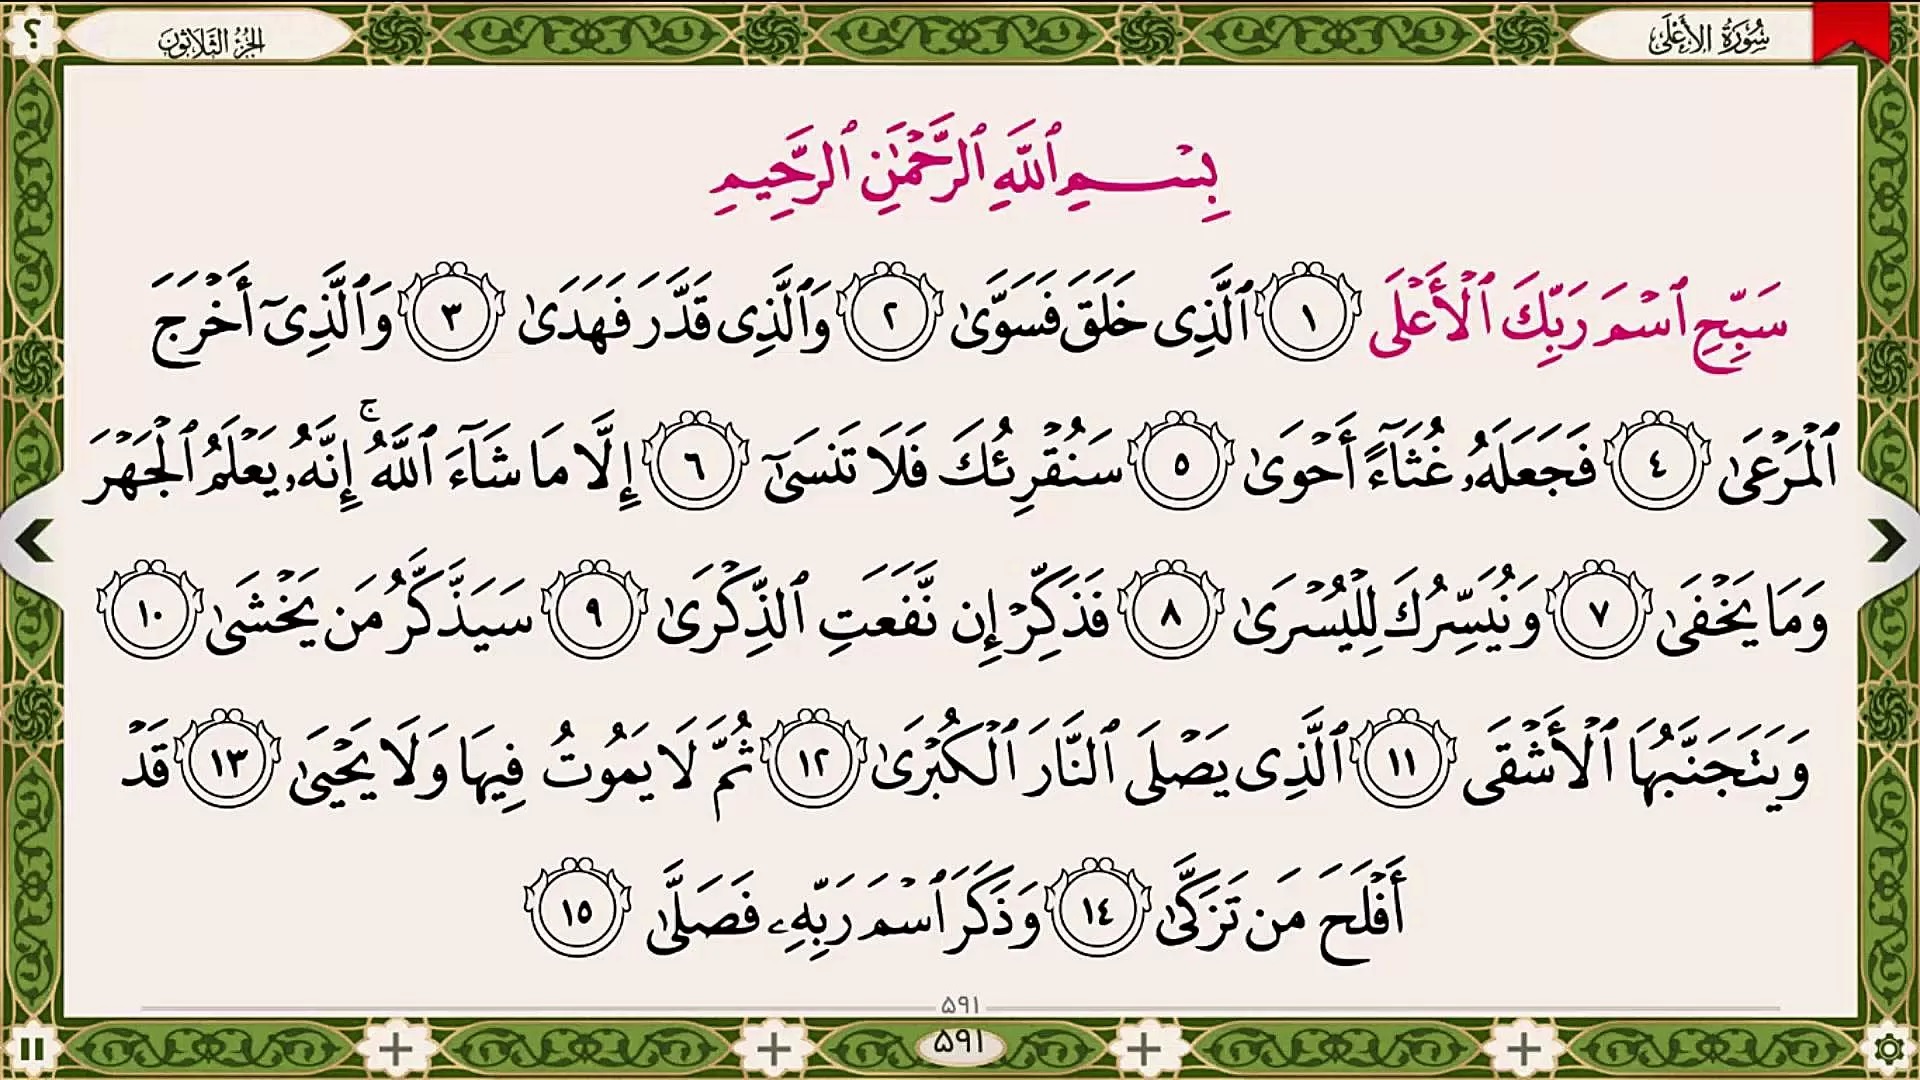 سُورَةُ الأَعْلَى
الجُزْءُ الثَّلَاثُونَ
؟
بِسْمِ ٱللَّهِ ٱلرَّحْمَٰنِ ٱلرَّحِيمِ
سَبِّحِ ٱسْمَ رَبِّكَ ٱلْأَعْلَى ١ ٱلَّذِى خَلَقَ فَسَوَّىٰ ٢ وَٱلَّذِى قَدَّرَ فَهَدَىٰ ٣ وَٱلَّذِىٓ أَخْرَجَ
ٱلْمَرْعَىٰ ٤ فَجَعَلَهُۥ غُثَآءً أَحْوَىٰ ٥ سَنُقْرِئُكَ فَلَا تَنسَىٰٓ ٦ إِلَّا مَا شَآءَ ٱللَّهُ ۚ إِنَّهُۥ يَعْلَمُ ٱلْجَهْرَ
وَمَا يَخْفَىٰ ٧ وَنُيَسِّرُكَ لِلْيُسْرَىٰ ٨ فَذَكِّرْ إِن نَّفَعَتِ ٱلذِّكْرَىٰ ٩ سَيَذَّكَّرُ مَن يَخْشَىٰ ١٠
وَيَتَجَنَّبُهَا ٱلْأَشْقَى ١١ ٱلَّذِى يَصْلَى ٱلنَّارَ ٱلْكُبْرَىٰ ١٢ ثُمَّ لَا يَمُوتُ فِيهَا وَلَا يَحْيَىٰ ١٣ قَدْ
أَفْلَحَ مَن تَزَكَّىٰ ١٤ وَذَكَرَ ٱسْمَ رَبِّهِۦ فَصَلَّىٰ ١٥
۵۹۱
۵۹۱